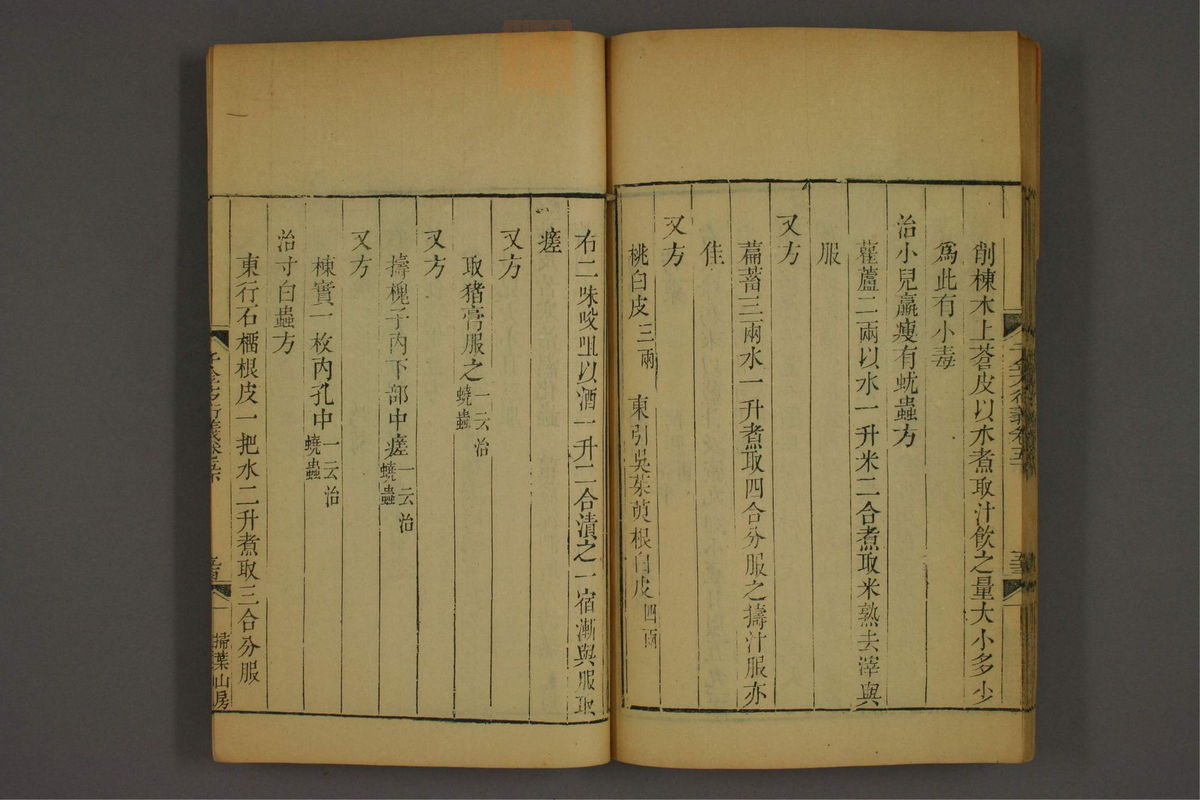 削楝木上蒼皮以水煮取汁飲之量大小多少
爲此有小毒
治小兒羸瘦有蚘蟲方
雚蘆二兩以水一升米二合煮取米熟去滓與
服
又方
萹蓄三兩水一升煮取四合分服之擣汁服亦
佳
又方
桃白皮三兩 東引吳茱萸根白皮四兩
右二味㕮咀以酒一升二合漬之一宿漸與服取
瘥
又方
取猪膏服之一云治蟯蟲
又方
擣槐子內下部中瘥一云治蟯蟲
又方
楝實一枚內孔中一云治蟯蟲
治寸白蟲方
東行石榴根皮一把水二升煮取三合分服
掃葉山房